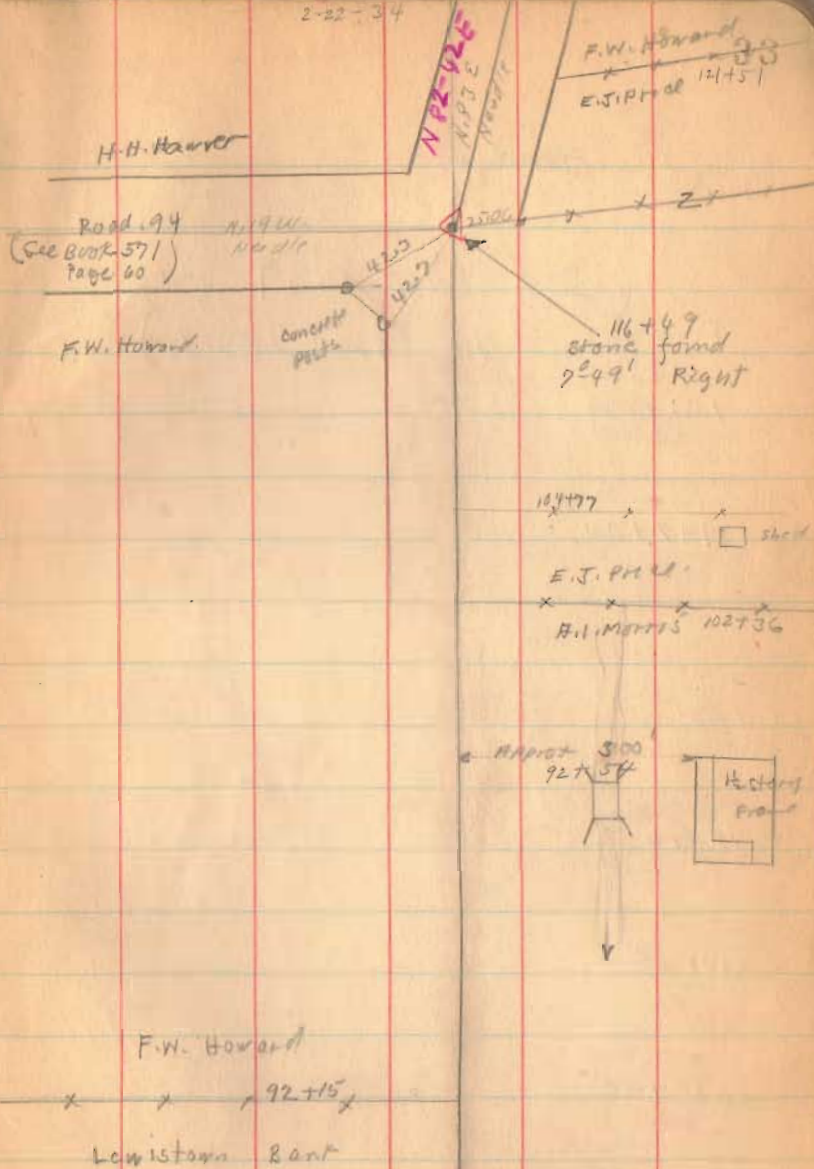 2-22-34
F.W. Howard
33
121+51
N 82-42 E
N. 83 E
Needle
H.H. Hawver
Road 94
(See Book 571
Page 60)
Needle
25.06
42.7
42.7
Concrete
Posts
F.W. Howard.
116+49
Stone found
7°-49' Right
104+77
Shed
E.J.
A.I. Morris 102+36
Approx 300'
92+54
1½ Story
Frame
F.W. Howard
92+15
Lewistown Bank